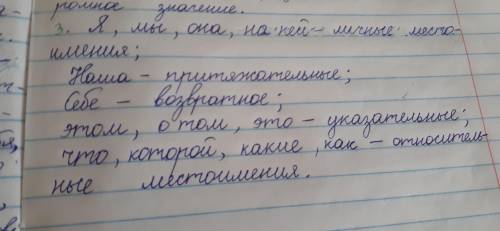 ромное значение.
3. Я, мы, она, на ней – личные место-
имения;
Наша – притяжательные;
Себе – возвратное;
этом, о том, это – указательные;
что, которой, какие, как – относитель-
ные местоимения.